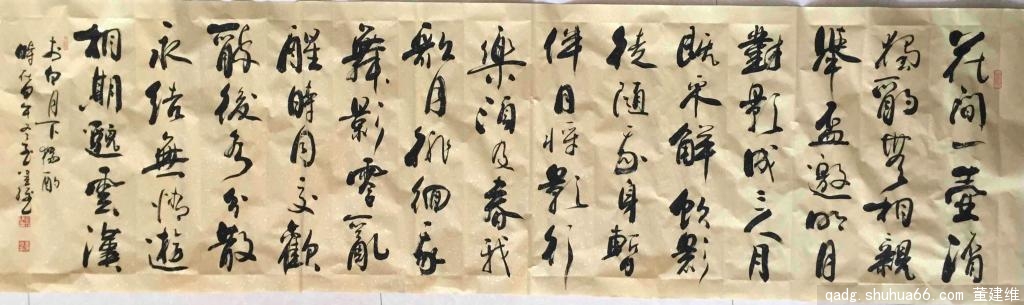 花間一壺酒
獨酌無相親
舉盃邀明月
對影成三人月
既不解飲影
徒隨我身暫
伴月將影行
樂須及春我
歌月徘徊我
舞影零亂
醒時同交歡
醉後各分散
永結無情遊
相期邈雲漢
李白月下獨酌
qadg.shuhua66.com 董建维